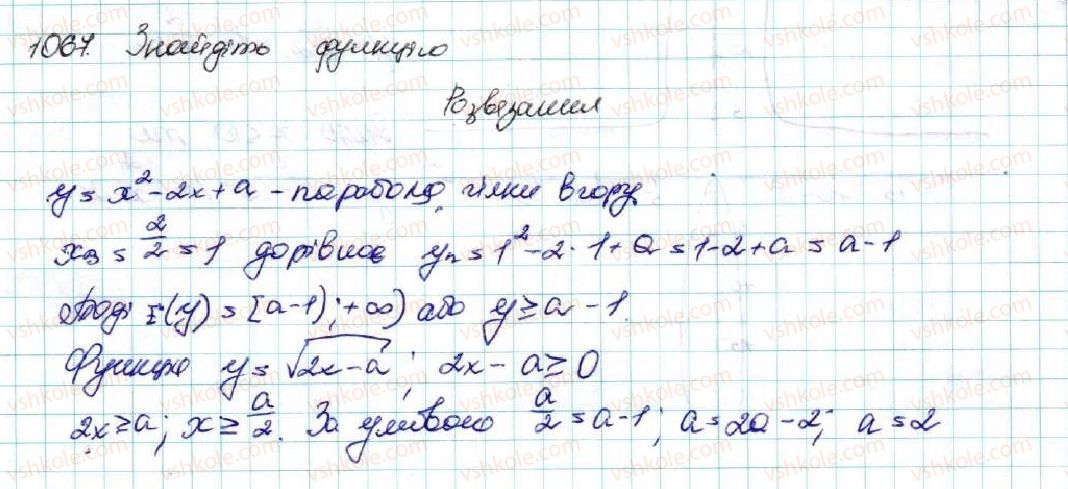 1067. Знайдіть функцію
Розвязання
y = x² - 2x + a - парабола, гілки вгору
xв = 2/2 = 1 дорівнює yн = 1² - 2 · 1 + a = 1 - 2 + a = a - 1
Тоді E(y) = [a - 1); +∞) або y ≥ a - 1.
Функцію y = √(2x - a); 2x - a ≥ 0
2x ≥ a; x ≥ a/2. За умовою a/2 = a - 1; a = 2a - 2; a = 2